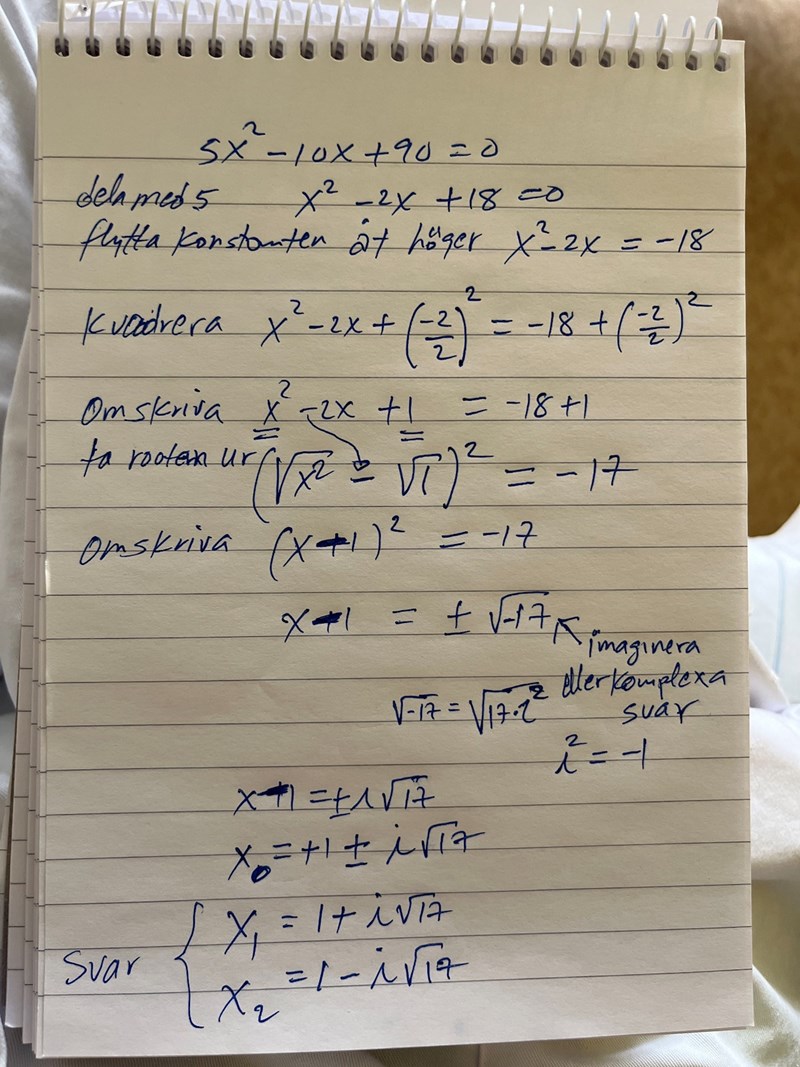 5x² - 10x + 90 = 0
dela med 5 x² - 2x + 18 = 0
flytta konstanten åt höger x² - 2x = -18
Kvadrera x² - 2x + (-2/2)² = -18 + (-2/2)²
Omskriva x² - 2x + 1 = -18 + 1
ta rooten ur (√x² - √1)² = -17
Omskriva (x - 1)² = -17
x - 1 = ± √-17
imaginera
eller komplexa
√-17 = √17·i² svar
i² = -1
x - 1 = ± i√17
x = +1 ± i√17
Svar { x₁ = 1 + i√17
x₂ = 1 - i√17